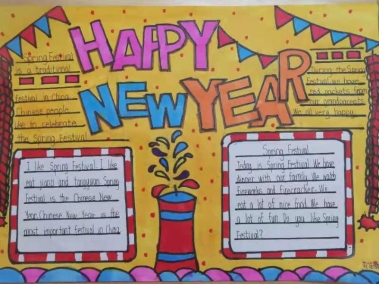 HAPPY
NEW YEAR
Spring Festival
is a traditional
festival in China
Chinese people
like to celebrate
the Spring Festival
During the Spring
Festival, we have
red packets from
our grandparents.
We are very happy.
I like Spring Festival. I like
eat yuanzi and tangyuan. Spring
festival is the Chinese New
Year. Chinese New Year is the
most important festival in China
Spring Festival
Today is Spring Festival. We have
dinner with our family. We watch
fireworks and firecracker. We
eat a lot of nice food. We have
a lot of fun. Do you like Spring
Festival?